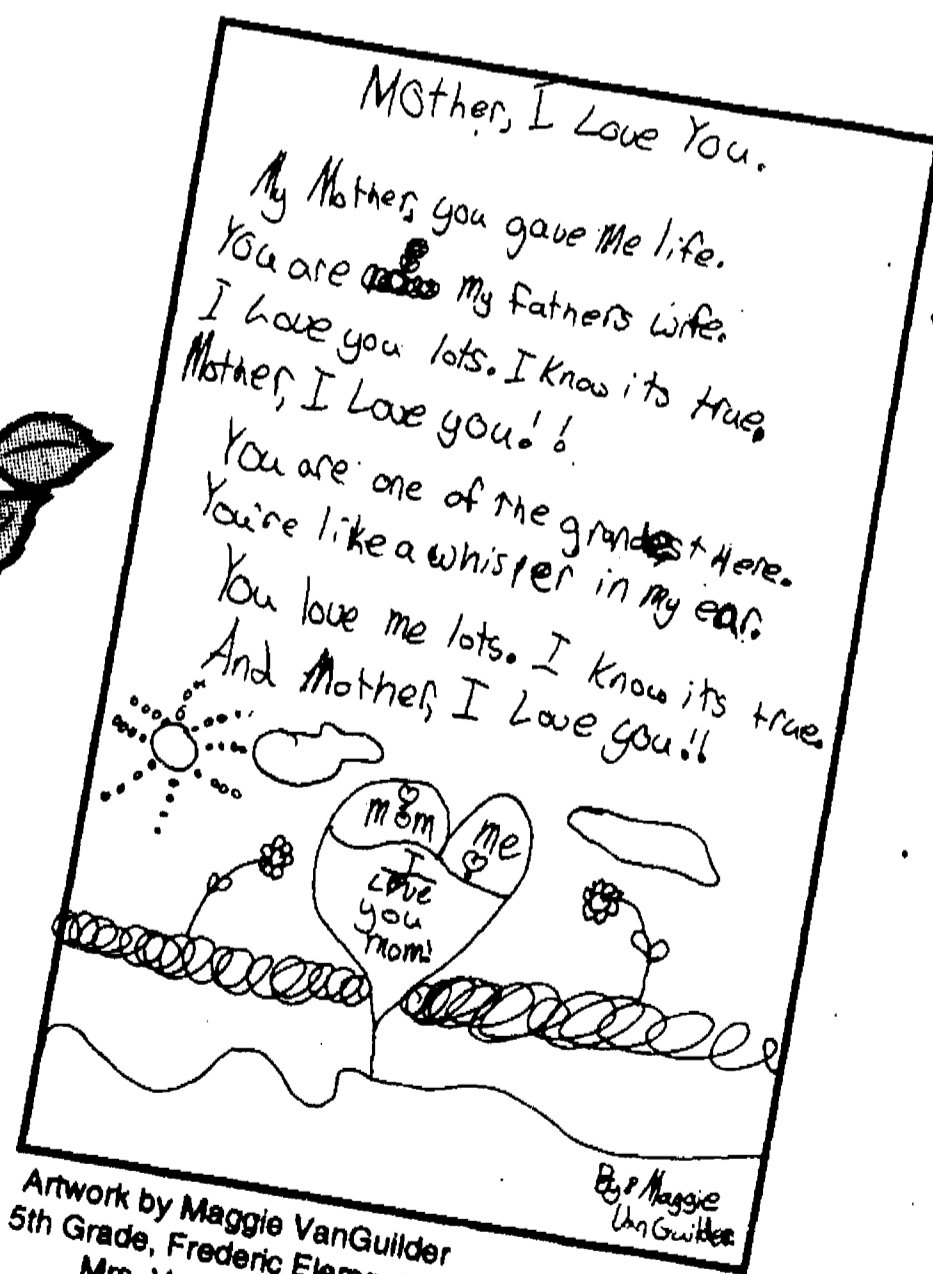 Mother, I Love You.
My Mother, you gave Me life.
You are My fathers wife.
I Love you lots. I Know its true.
Mother, I Love you!!
You are one of the grandest Here.
You're like a whisper in my ear.
You love me lots. I Know its true.
And Mother, I Love you!!
mom
me
I
Love
you
mom!
By: Maggie
VanGuilder
Artwork by Maggie VanGuilder
5th Grade, Frederic